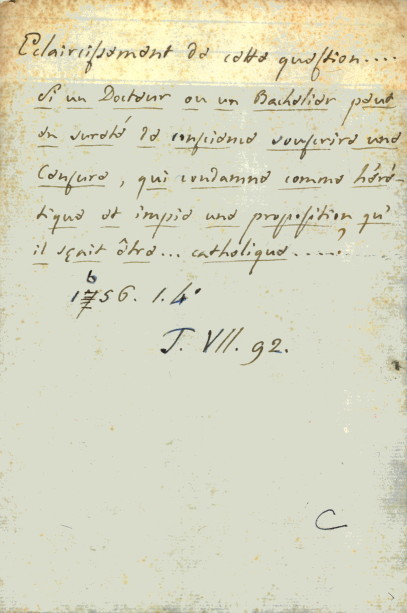 Eclaircissement de cette question....
si un Docteur ou un Bachelier peut
en sureté de conscience souscrire une
Censure, qui condamne comme héré-
tique et impie une proposition qu'
il sçait être... catholique.....?
1656. 1. 4°
T. VII. 92.
C